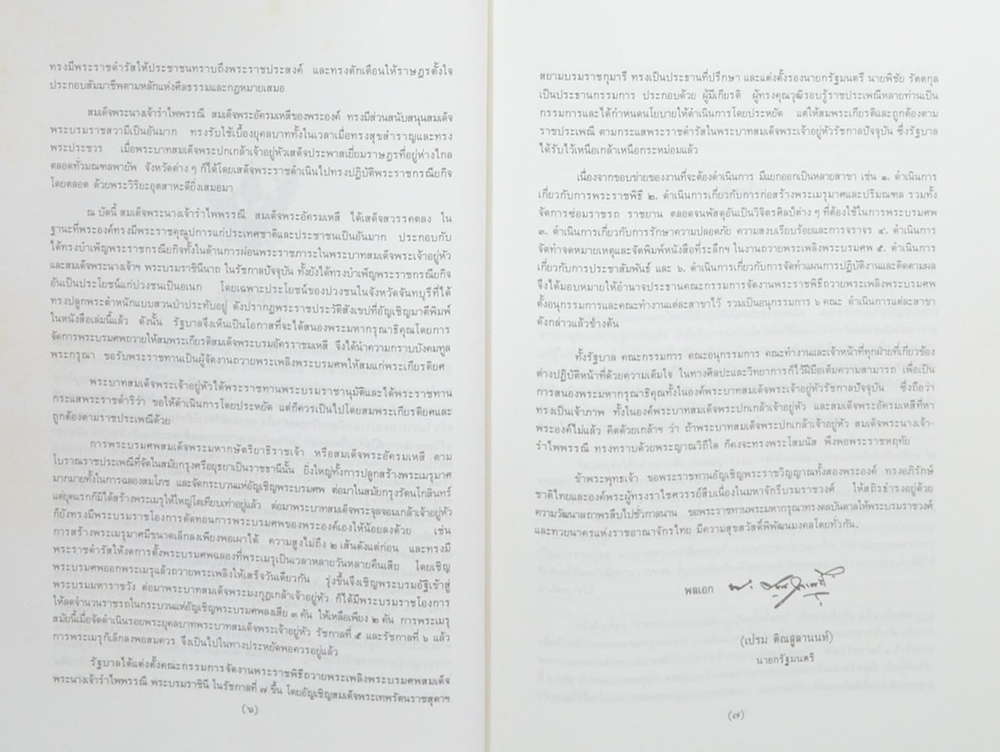 ทรงมีพระราชดำรัสให้ประชาชนทราบถึงพระราชประสงค์ และทรงตักเตือนให้ราษฎรตั้งใจ
ประกอบสัมมาชีพตามหลักแห่งศีลธรรมและกฎหมายเสมอ
สมเด็จพระนางเจ้ารำไพพรรณี สมเด็จพระอัครมเหสีของพระองค์ ทรงมีส่วนสนับสนุนสมเด็จ
พระบรมราชสวามีเป็นอันมาก ทรงรับใช้เบื้องยุคลบาททั้งในเวลาเมื่อทรงสุขสำราญและทรง
พระประชวร เมื่อพระบาทสมเด็จพระปกเกล้าเจ้าอยู่หัวเสด็จประพาสเยี่ยมราษฎรที่อยู่ห่างไกล
ตลอดทั่วมณฑลพายัพ จังหวัดต่าง ๆ ก็ได้โดยเสด็จพระราชดำเนินไปทรงปฏิบัติพระราชกรณียกิจ
โดยตลอด ด้วยพระวิริยะอุตสาหะดียิ่งเสมอมา
ณ บัดนี้ สมเด็จพระนางเจ้ารำไพพรรณี สมเด็จพระอัครมเหสี ได้เสด็จสวรรคตลง ใน
ฐานะที่พระองค์ทรงมีพระราชคุณูปการแก่ประเทศชาติและประชาชนเป็นอันมาก ประกอบกับ
ได้ทรงบำเพ็ญพระราชกรณียกิจทั้งในด้านการผ่อนพระราชภาระในพระบาทสมเด็จพระเจ้าอยู่หัว
และสมเด็จพระนางเจ้าฯ พระบรมราชินีนาถ ในรัชกาลปัจจุบัน ทั้งยังได้ทรงบำเพ็ญพระราชกรณียกิจ
อันเป็นประโยชน์แก่ปวงชนเป็นอเนก โดยเฉพาะประโยชน์ของปวงชนในจังหวัดจันทบุรีที่ได้
ทรงปลูกพระตำหนักแบบสวนป่าประทับอยู่ ดังปรากฏพระราชประวัติสังเขปที่อัญเชิญมาตีพิมพ์
ในหนังสือเล่มนี้แล้ว ดังนั้น รัฐบาลจึงเห็นเป็นโอกาสที่จะได้สนองพระมหากรุณาธิคุณโดยการ
จัดการพระบรมศพถวายให้สมพระเกียรติสมเด็จพระบรมอัครราชมเหสี จึงได้นำความกราบบังคมทูล
พระกรุณา ขอรับพระราชทานเป็นผู้จัดงานถวายพระเพลิงพระบรมศพให้สมแก่พระเกียรติยศ
พระบาทสมเด็จพระเจ้าอยู่หัวได้พระราชทานพระบรมราชานุมัติและได้พระราชทาน
กระแสพระราชดำริว่า ขอให้ดำเนินการโดยประหยัด แต่ก็ควรเป็นไปโดยสมพระเกียรติยศและ
ถูกต้องตามราชประเพณีด้วย
การพระบรมศพสมเด็จพระมหากษัตริยาธิราชเจ้า หรือสมเด็จพระอัครมเหสี ตาม
โบราณราชประเพณีที่จัดในสมัยกรุงศรีอยุธยาเป็นราชธานีนั้น ยิ่งใหญ่ทั้งการปลูกสร้างพระเมรุมาศ
มากมายทั้งในการฉลองสมโภช และจัดกระบวนแห่อัญเชิญพระบรมศพ ต่อมาในสมัยกรุงรัตนโกสินทร์
แต่ยุคแรกก็มิได้สร้างพระเมรุให้ใหญ่โตเทียบเท่าอยู่แล้ว ต่อมาพระบาทสมเด็จพระจุลจอมเกล้าเจ้าอยู่หัว
ก็ยังทรงมีพระบรมราชโองการตัดทอนการพระบรมศพของพระองค์เองให้น้อยลงด้วย เช่น
การสร้างพระเมรุมาศมีขนาดเล็กลงเพียงพอเผาได้ ความสูงไม่ถึง ๒ เส้นดังแต่ก่อน และทรงมี
พระราชดำรัสให้งดการตั้งพระบรมศพฉลองที่พระเมรุเป็นเวลาหลายวันหลายคืนเสีย โดยเชิญ
พระบรมศพออกพระเมรุแล้วถวายพระเพลิงให้เสร็จวันเดียวกัน รุ่งขึ้นจึงเชิญพระบรมอัฐิเข้าสู่
พระบรมมหาราชวัง ต่อมาพระบาทสมเด็จพระมงกุฎเกล้าเจ้าอยู่หัว ก็ได้มีพระบรมราชโองการ
ให้ลดจำนวนราชรถในกระบวนแห่อัญเชิญพระบรมศพลงเสีย ๓ คัน ให้เหลือเพียง ๒ คัน การพระเมรุ
สมัยนี้เมื่อจัดดำเนินรอยพระยุคลบาทพระบาทสมเด็จพระเจ้าอยู่หัว รัชกาลที่ ๕ และรัชกาลที่ ๖ แล้ว
การพระเมรุก็เล็กลงพอสมควร จึงเป็นไปในทางประหยัดพอควรอยู่แล้ว
รัฐบาลได้แต่งตั้งคณะกรรมการจัดงานพระราชพิธีถวายพระเพลิงพระบรมศพสมเด็จ
พระนางเจ้ารำไพพรรณี พระบรมราชินี ในรัชกาลที่ ๗ ขึ้น โดยอัญเชิญสมเด็จพระเทพรัตนราชสุดาฯ
(๖)
สยามบรมราชกุมารี ทรงเป็นประธานที่ปรึกษา และแต่งตั้งรองนายกรัฐมนตรี นายพิชัย รัตตกุล
เป็นประธานกรรมการ ประกอบด้วย ผู้มีเกียรติ ผู้ทรงคุณวุฒิรอบรู้ราชประเพณีหลายท่านเป็น
กรรมการและได้กำหนดนโยบายให้ดำเนินการโดยประหยัด แต่ให้สมพระเกียรติและถูกต้องตาม
ราชประเพณี ตามกระแสพระราชดำรัสในพระบาทสมเด็จพระเจ้าอยู่หัวรัชกาลปัจจุบัน ซึ่งรัฐบาล
ได้รับไว้เหนือเกล้าเหนือกระหม่อมแล้ว
เนื่องจากขอบข่ายของงานที่จะต้องดำเนินการ มีแยกออกเป็นหลายสาขา เช่น ๑. ดำเนินการ
เกี่ยวกับการพระราชพิธี ๒. ดำเนินการเกี่ยวกับการก่อสร้างพระเมรุมาศและปริมณฑล รวมทั้ง
จัดการซ่อมราชรถ ราชยาน ตลอดจนพัสดุอันเป็นวิจิตรศิลป์ต่าง ๆ ที่ต้องใช้ในการพระบรมศพ
๓. ดำเนินการเกี่ยวกับการรักษาความปลอดภัย ความสงบเรียบร้อยและการจราจร ๔. ดำเนินการ
จัดทำจดหมายเหตุและจัดพิมพ์หนังสือที่ระลึกฯ ในงานถวายพระเพลิงพระบรมศพ ๕. ดำเนินการ
เกี่ยวกับการประชาสัมพันธ์ และ ๖. ดำเนินการเกี่ยวกับการจัดทำแผนการปฏิบัติงานและติดตามผล
จึงได้มอบหมายให้อำนาจประธานคณะกรรมการจัดงานพระราชพิธีถวายพระเพลิงพระบรมศพ
ตั้งอนุกรรมการและคณะทำงานแต่ละสาขาไว้ รวมเป็นอนุกรรมการ ๖ คณะ ดำเนินการแต่ละสาขา
ดังกล่าวแล้วข้างต้น
ทั้งรัฐบาล คณะกรรมการ คณะอนุกรรมการ คณะทำงานและเจ้าหน้าที่ทุกฝ่ายที่เกี่ยวข้อง
ต่างปฏิบัติหน้าที่ด้วยความเต็มใจ ในทางศิลปะและวิทยาการก็ไว้ฝีมือเต็มความสามารถ เพื่อเป็น
การสนองพระมหากรุณาธิคุณทั้งในองค์พระบาทสมเด็จพระเจ้าอยู่หัวรัชกาลปัจจุบัน ซึ่งถือว่า
ทรงเป็นเจ้าภาพ ทั้งในองค์พระบาทสมเด็จพระปกเกล้าเจ้าอยู่หัว และสมเด็จพระอัครมเหสีที่หา
พระองค์ไม่แล้ว คิดด้วยเกล้าฯ ว่า ถ้าพระบาทสมเด็จพระปกเกล้าเจ้าอยู่หัว สมเด็จพระนางเจ้า-
รำไพพรรณี ทรงทราบด้วยพระญาณวิถีใด ก็คงจะทรงพระโสมนัส พึงพอพระราชหฤทัย
ข้าพระพุทธเจ้า ขอพระราชทานอัญเชิญพระราชวิญญาณทั้งสองพระองค์ ทรงอภิรักษ์
ชาติไทยและองค์พระผู้ทรงราไชศวรรย์สืบเนื่องในมหาจักรีบรมราชวงศ์ ให้สถิรธำรงอยู่ด้วย
ความวัฒนาถาพรสืบไปชั่วกาลนาน ขอพระราชทานพระมหากรุณาทรงดลบันดาลให้พระบรมราชวงศ์
และทวยนาครแห่งราชอาณาจักรไทย มีความสุขสวัสดิ์พิพัฒนมงคลโดยทั่วกัน.
พลเอก
(เปรม ติณสูลานนท์)
นายกรัฐมนตรี
(๗)